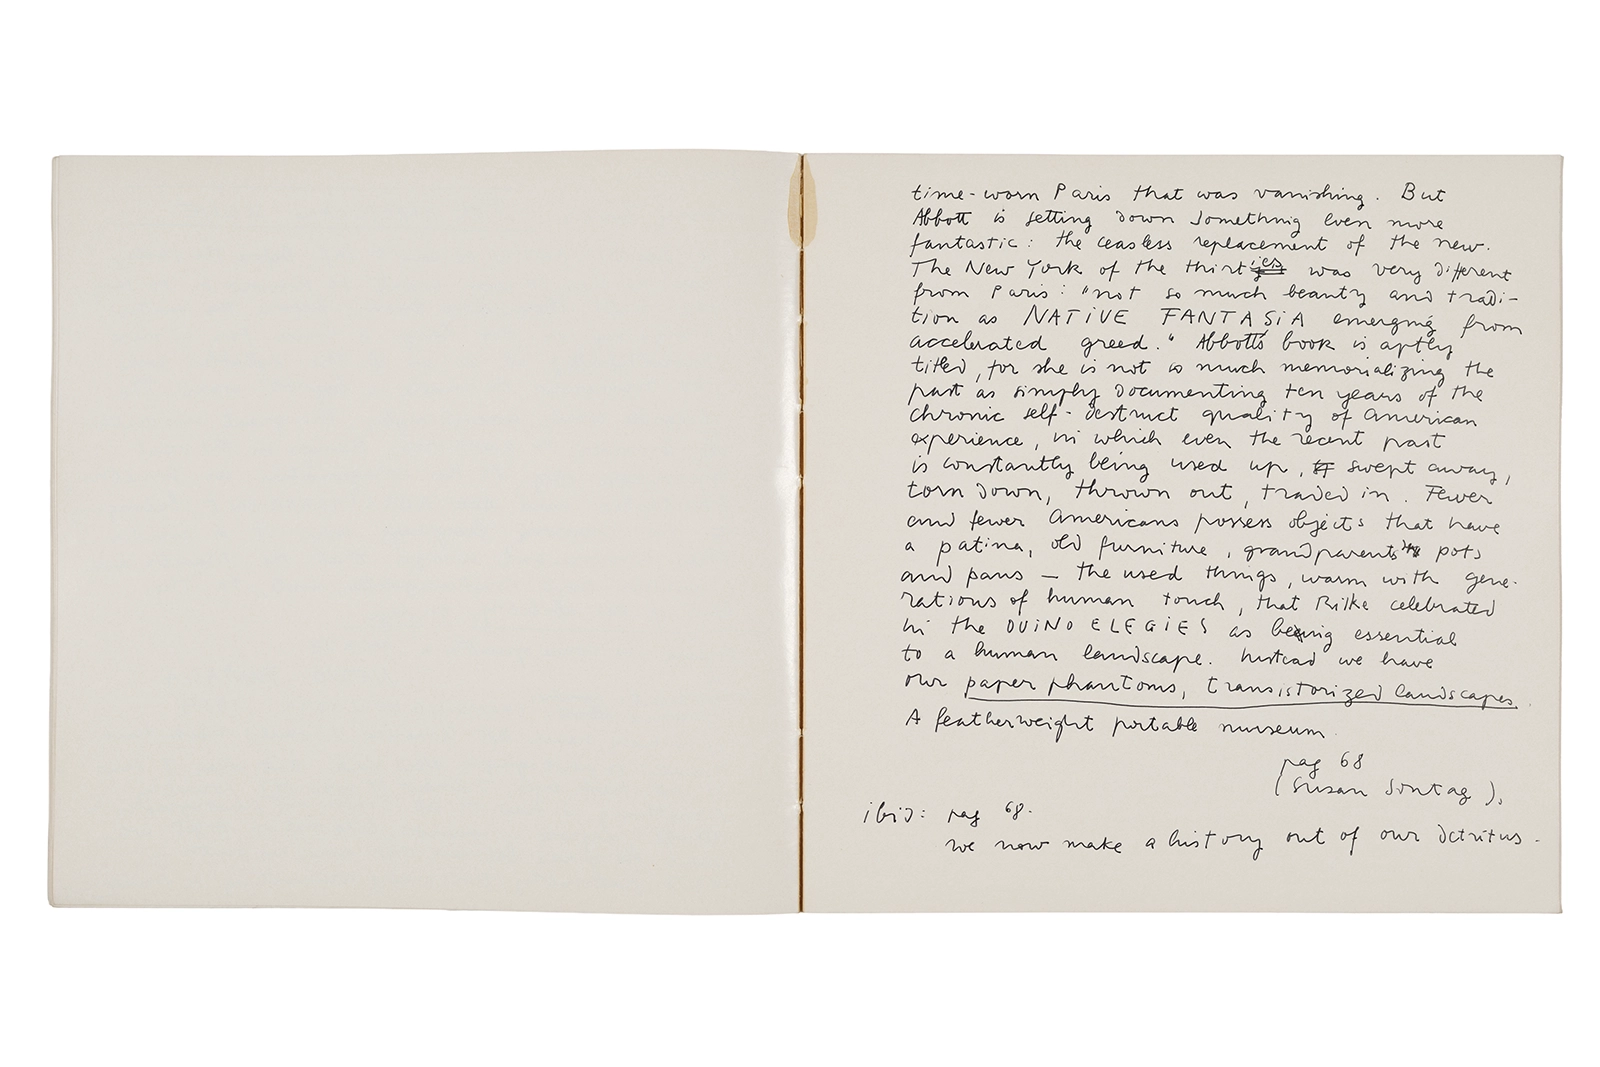 time-worn Paris that was vanishing. But
Abbott is setting down something even more
fantastic: the ceasless replacement of the new.
The New York of the thirties was very different
from Paris: "not so much beauty and tradi-
tion as NATIVE FANTASIA emerging from
accelerated greed." Abbott's book is aptly
titled, for she is not so much memorializing the
past as simply documenting ten years of the
chronic self-destruct quality of American
experience, in which even the recent past
is constantly being used up, swept away,
torn down, thrown out, traded in. Fewer
and fewer Americans possess objects that have
a patina, old furniture, grandparents' pots
and pans — the used things, warm with gene-
rations of human touch, that Rilke celebrated
in the DUINO ELEGIES as being essential
to a human landscape. Instead we have
our paper phantoms, transistorized landscapes.
A featherweight portable museum.
pag 68
(Susan Sontag).
ibid: pag 68.
we now make a history out of our detritus.